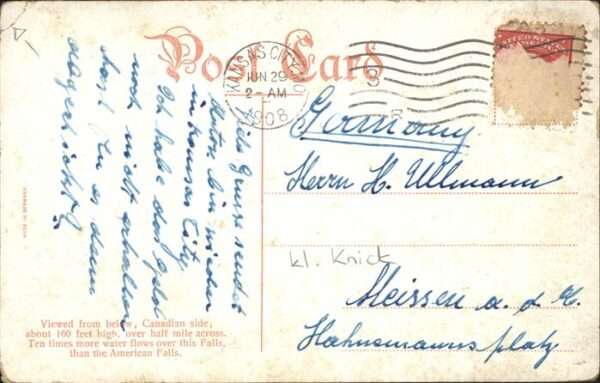 Post Card
KANSAS CITY, MO
JUN 29
2 - AM
1908
Germany
Herrn H. Ullmann
kl. Knick
Meissen a. d. E.
Hahnemanns platz
Viele Grüsse sendet
bin wieder
in Kansas City
Ich habe das
noch nicht erhalten
hast Du es denn
abgeschickt?
Viewed from below, Canadian side,
about 160 feet high, over half mile across.
Ten times more water flows over this Falls,
than the American Falls.